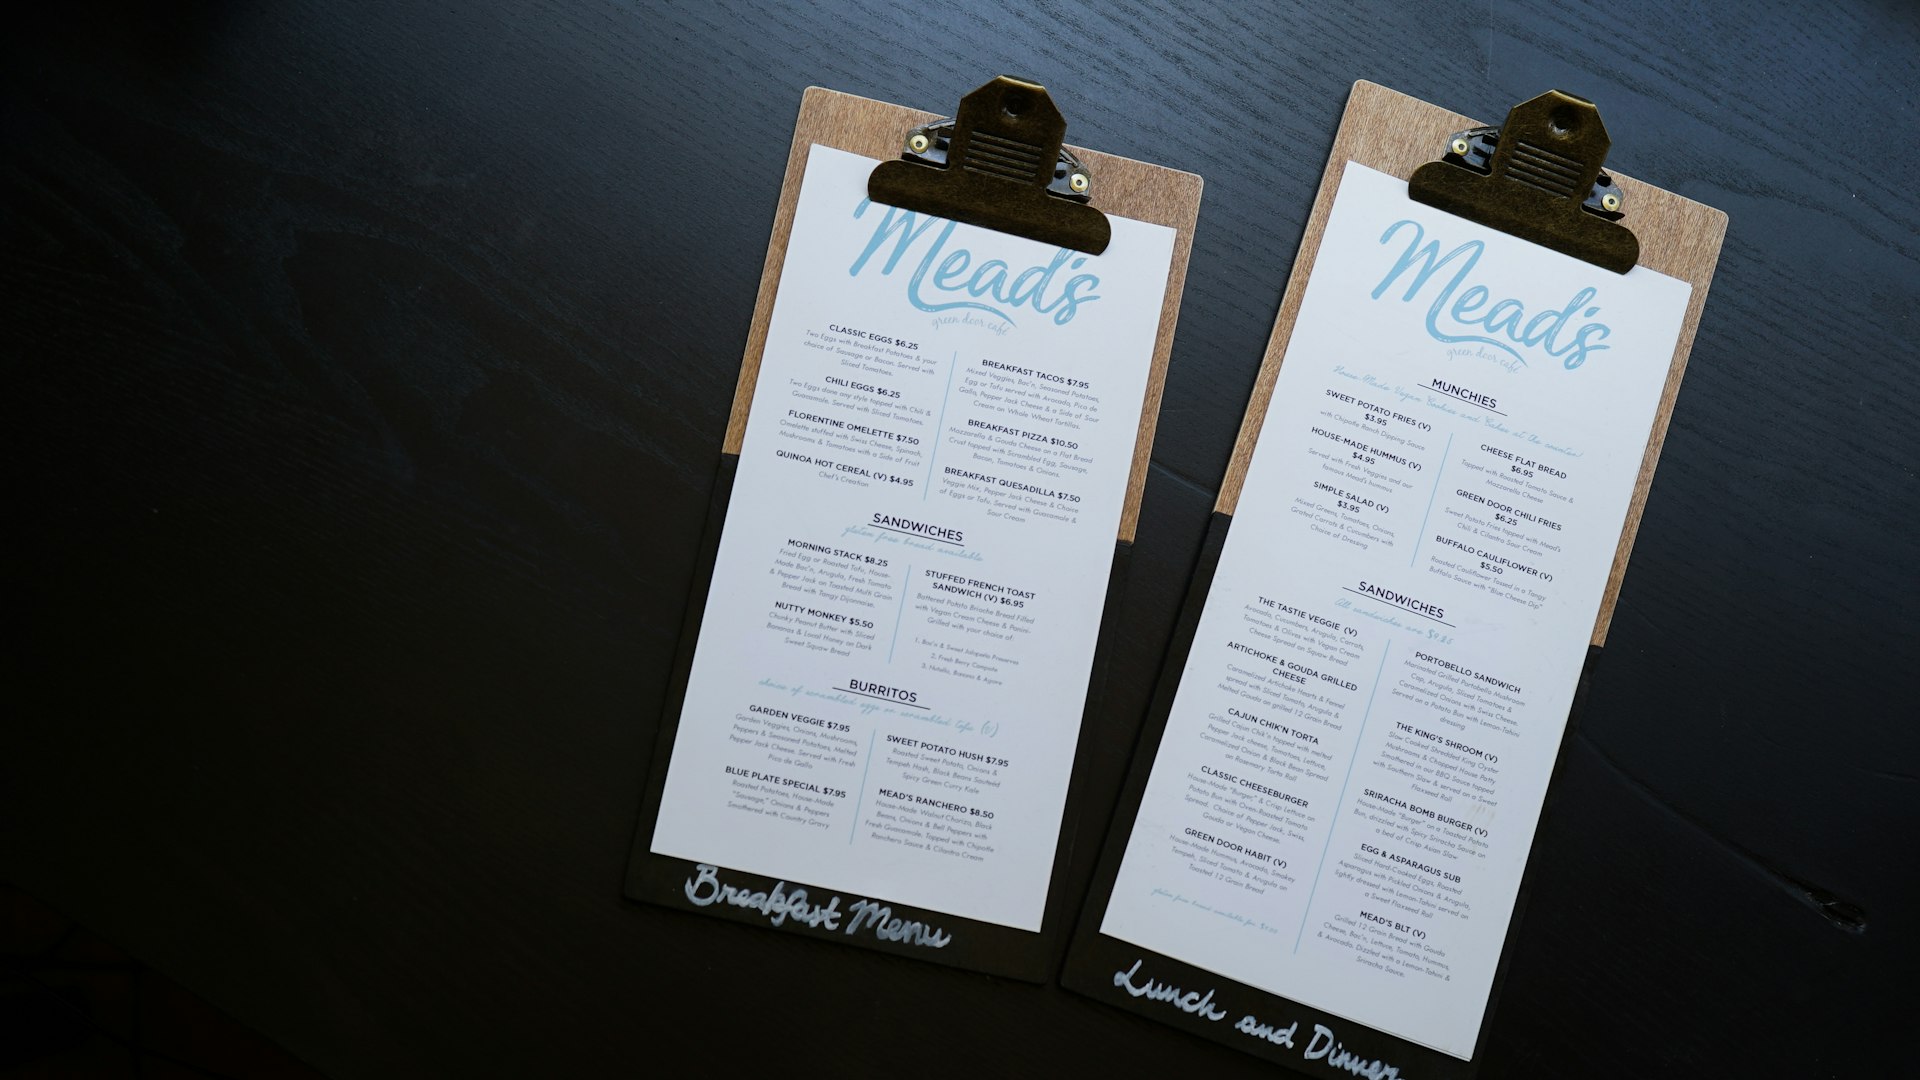 Mead's
green door café
CLASSIC EGGS $6.25
Two Eggs with Breakfast Potatoes & your
choice of Sausage or Bacon. Served with
Sliced Tomatoes.
CHILI EGGS $6.25
Two Eggs done any style topped with Chili &
Guacamole. Served with Sliced Tomatoes.
FLORENTINE OMELETTE $7.50
Omelette stuffed with Swiss Cheese, Spinach,
Mushrooms & Tomatoes with a Side of Fruit
QUINOA HOT CEREAL (V) $4.95
Chef's Creation
BREAKFAST TACOS $7.95
Mixed Veggies, Bac'n, Seasoned Potatoes,
Egg or Tofu served with Avocado, Pico de
Gallo, Pepper Jack Cheese & a Side of Sour
Cream on Whole Wheat Tortillas.
BREAKFAST PIZZA $10.50
Mozzarella & Gouda Cheese on a Flat Bread
Crust topped with Scrambled Egg, Sausage,
Bacon, Tomatoes & Onions.
BREAKFAST QUESADILLA $7.50
Veggie Mix, Pepper Jack Cheese & Choice
of Eggs or Tofu. Served with Guacamole &
Sour Cream
SANDWICHES
gluten free bread available
MORNING STACK $8.25
Fried Egg or Roasted Tofu, House-
Made Bac'n, Arugula, Fresh Tomato
& Pepper Jack on Toasted Multi Grain
Bread with Tangy Dijonnaise.
NUTTY MONKEY $5.50
Chunky Peanut Butter with Sliced
Bananas & Local Honey on Dark
Sweet Squaw Bread
STUFFED FRENCH TOAST
SANDWICH (V) $6.95
Battered Potato Brioche Bread Filled
with Vegan Cream Cheese & Panini-
Grilled with your choice of:
1. Bac'n & Sweet Jalapeño Preserves
2. Fresh Berry Compote
3. Nutella, Banana & Agave
BURRITOS
choice of scrambled eggs or scrambled tofu (v)
GARDEN VEGGIE $7.95
Garden Veggies, Onions, Mushrooms,
Peppers & Seasoned Potatoes, Melted
Pepper Jack Cheese. Served with Fresh
Pico de Gallo
BLUE PLATE SPECIAL $7.95
Roasted Potatoes, House-Made
"Sausage," Onions & Peppers
Smothered with Country Gravy
SWEET POTATO HUSH $7.95
Roasted Sweet Potato, Onions &
Tempeh Hash, Black Beans Sautéed
Spicy Green Curry Kale
MEAD'S RANCHERO $8.50
House-Made Walnut Chorizo, Black
Beans, Onions & Bell Peppers with
Fresh Guacamole. Topped with Chipotle
Ranchero Sauce & Cilantro Cream
Breakfast Menu
Mead's
green door café
MUNCHIES
House Made Vegan Cookies and Cakes at the counter!
SWEET POTATO FRIES (V)
$3.95
with Chipotle Ranch Dipping Sauce
HOUSE-MADE HUMMUS (V)
$4.95
Served with Fresh Veggies and our
famous Mead's hummus
SIMPLE SALAD (V)
$3.95
Mixed Greens, Tomatoes, Onions,
Grated Carrots & Cucumbers with
Choice of Dressing
CHEESE FLAT BREAD
$6.95
Topped with Roasted Tomato Sauce &
Mozzarella Cheese
GREEN DOOR CHILI FRIES
$6.25
Sweet Potato Fries topped with Mead's
Chili & Cilantro Sour Cream
BUFFALO CAULIFLOWER (V)
$5.50
Roasted Cauliflower Tossed in a Tangy
Buffalo Sauce with "Blue Cheese Dip"
SANDWICHES
All sandwiches are $9.25
THE TASTIE VEGGIE (V)
Avocado, Cucumbers, Arugula, Carrots,
Tomatoes & Olives with Vegan Cream
Cheese Spread on Squaw Bread
ARTICHOKE & GOUDA GRILLED
CHEESE
Caramelized Artichoke Hearts & Fennel
spread with Sliced Tomato, Arugula &
Melted Gouda on grilled 12 Grain Bread
CAJUN CHIK'N TORTA
Grilled Cajun Chik'n topped with melted
Pepper Jack cheese, Tomatoes, Lettuce,
Caramelized Onion & Black Bean Spread
on Rosemary Torta Roll
CLASSIC CHEESEBURGER
House-Made "Burger" & Crisp Lettuce on
Potato Bun with Oven-Roasted Tomato
Spread, Choice of Pepper Jack, Swiss,
Gouda or Vegan Cheese.
GREEN DOOR HABIT (V)
House-Made Hummus, Avocado, Smokey
Tempeh, Sliced Tomato & Arugula on
Toasted 12 Grain Bread
gluten free bread available for
PORTOBELLO SANDWICH
Marinated Grilled Portobello Mushroom
Cap, Arugula, Sliced Tomatoes &
Caramelized Onions with Swiss Cheese.
Served on a Potato Bun with Lemon-Tahini
dressing
THE KING'S SHROOM (V)
Slow Cooked Shredded King Oyster
Mushrooms & Chopped House Patty
Smothered in our BBQ Sauce topped
with Southern Slaw & served on a Sweet
Flaxseed Roll
SRIRACHA BOMB BURGER (V)
House-Made "Burger" on a Toasted Potato
Bun, drizzled with Spicy Sriracha Sauce on
a bed of Crisp Asian Slaw
EGG & ASPARAGUS SUB
Sliced Hard-Cooked Eggs, Roasted
Asparagus with Pickled Onions & Arugula,
lightly dressed with Lemon-Tahini served on
a Sweet Flaxseed Roll
MEAD'S BLT (V)
Grilled 12 Grain Bread with Gouda
Cheese, Bac'n, Lettuce, Tomato, Hummus,
& Avocado. Dizzled with a Lemon-Tahini &
Sriracha Sauce.
Lunch and Dinner